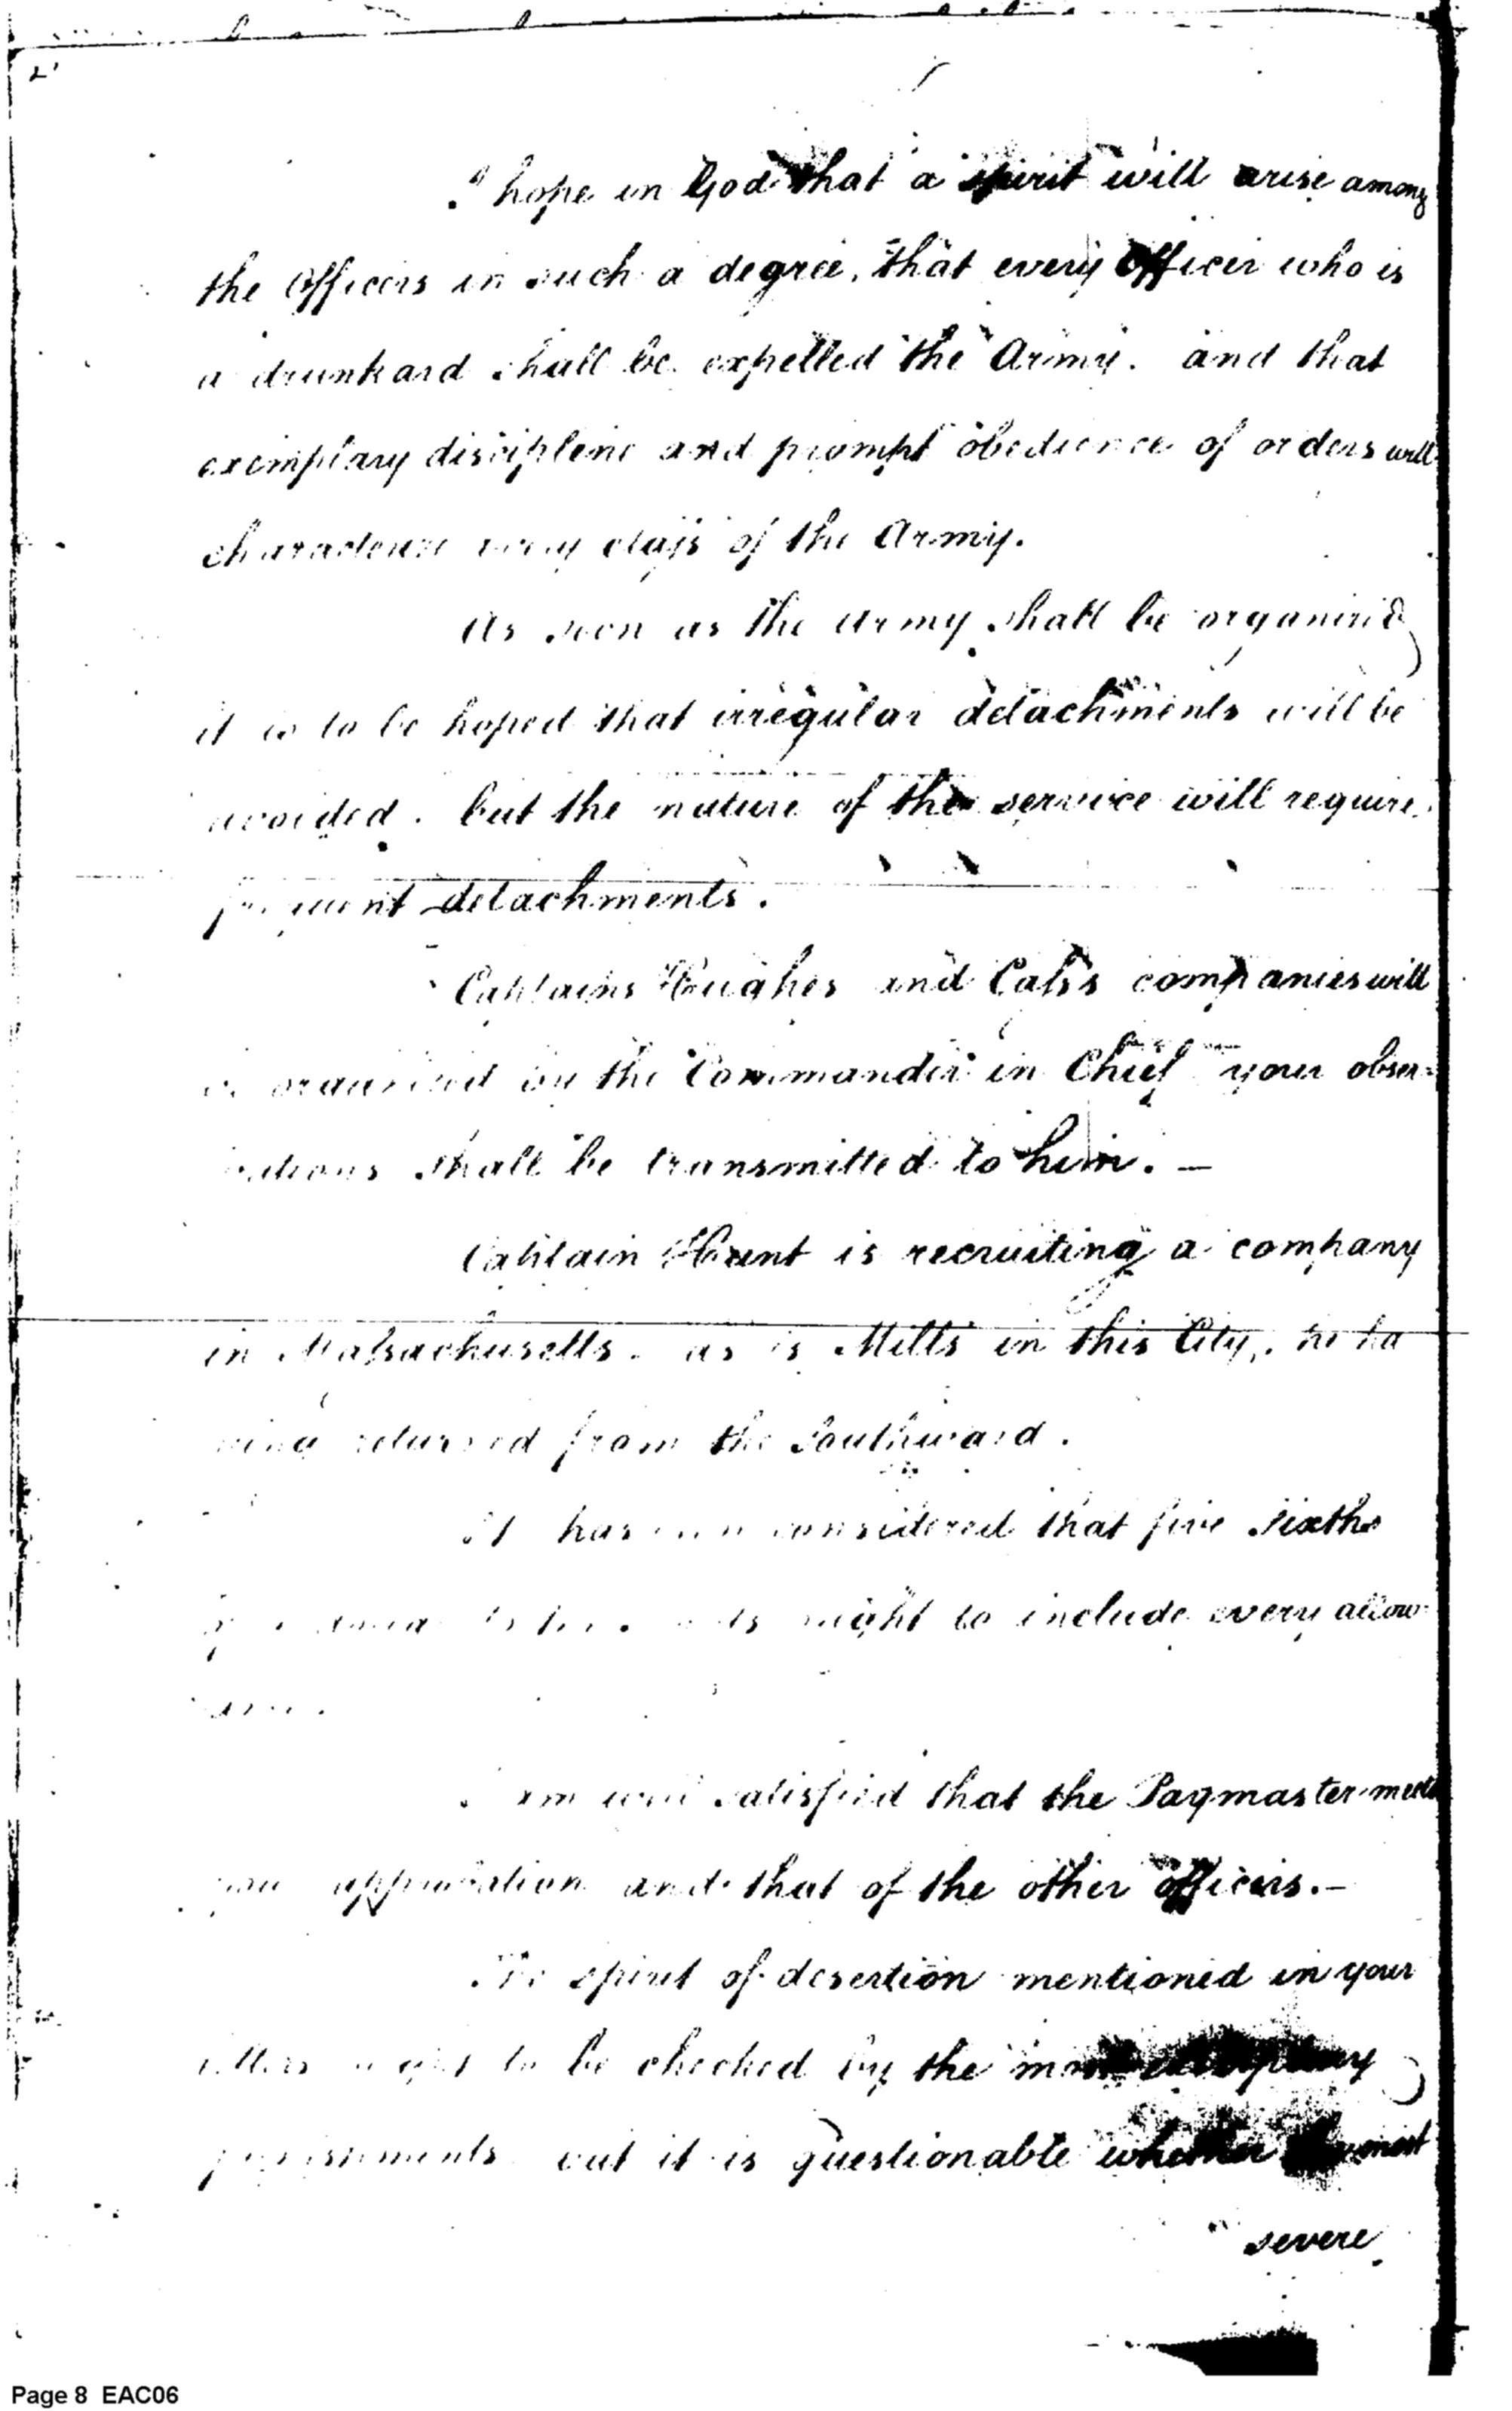 I hope in God that a spirit will arise among
the officers in such a degree, that every officer who is
a drunkard shall be expelled the Army. and that
exemplary discipline and prompt obedience of orders will
characterize every class of the Army.
As soon as the Army shall be organized
it is to be hoped that irregular detachments will be
avoided. but the nature of the service will require
frequent detachments.
Captains Hughes and Cass's companies will
be organized by the Commander in Chief your obser-
vations shall be transmitted to him. —
Captain Hunt is recruiting a company
in Massachusetts. as is Mills in this City, he ha
ving returned from the Southward.
It has been considered that five sixths
ought to include every allow
I am well satisfied that the Paymaster meets
your approbation and that of the other officers. —
The spirit of desertion mentioned in your
letters ought to be checked by the most exemplary
punishments but it is questionable whether the most
severe
Page 8 EAC06